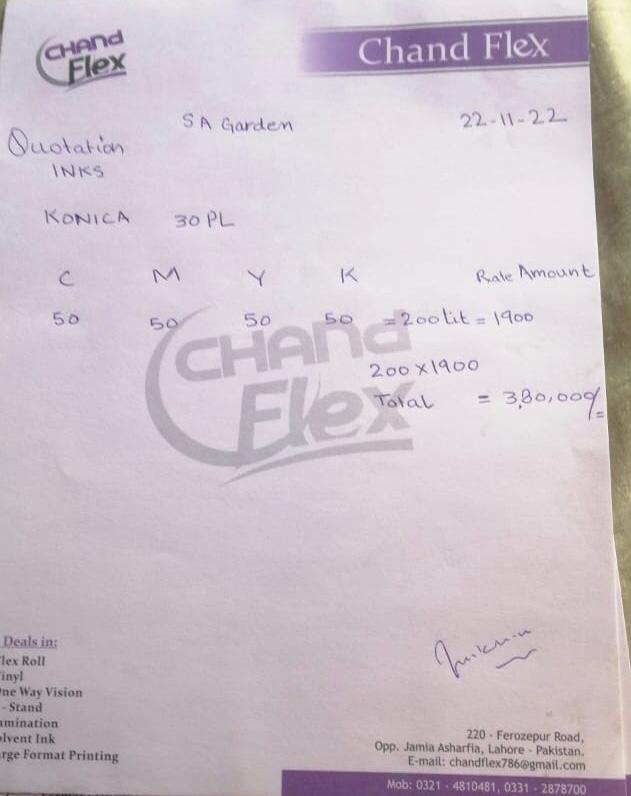 CHAND
Flex
Chand Flex
SA Garden
22-11-22
Quotation
INKS
KONICA 30 PL
C M Y K Rate Amount
50 50 50 50 = 200 Lit = 1900
200 x 1900
Total = 3,80,000/=
CHAND
Flex
Deals in:
lex Roll
inyl
ne Way Vision
- Stand
mination
lvent Ink
rge Format Printing
220 - Ferozepur Road,
Opp. Jamia Asharfia, Lahore - Pakistan.
E-mail: chandflex786@gmail.com
Mob: 0321 - 4810481, 0331 - 2878700